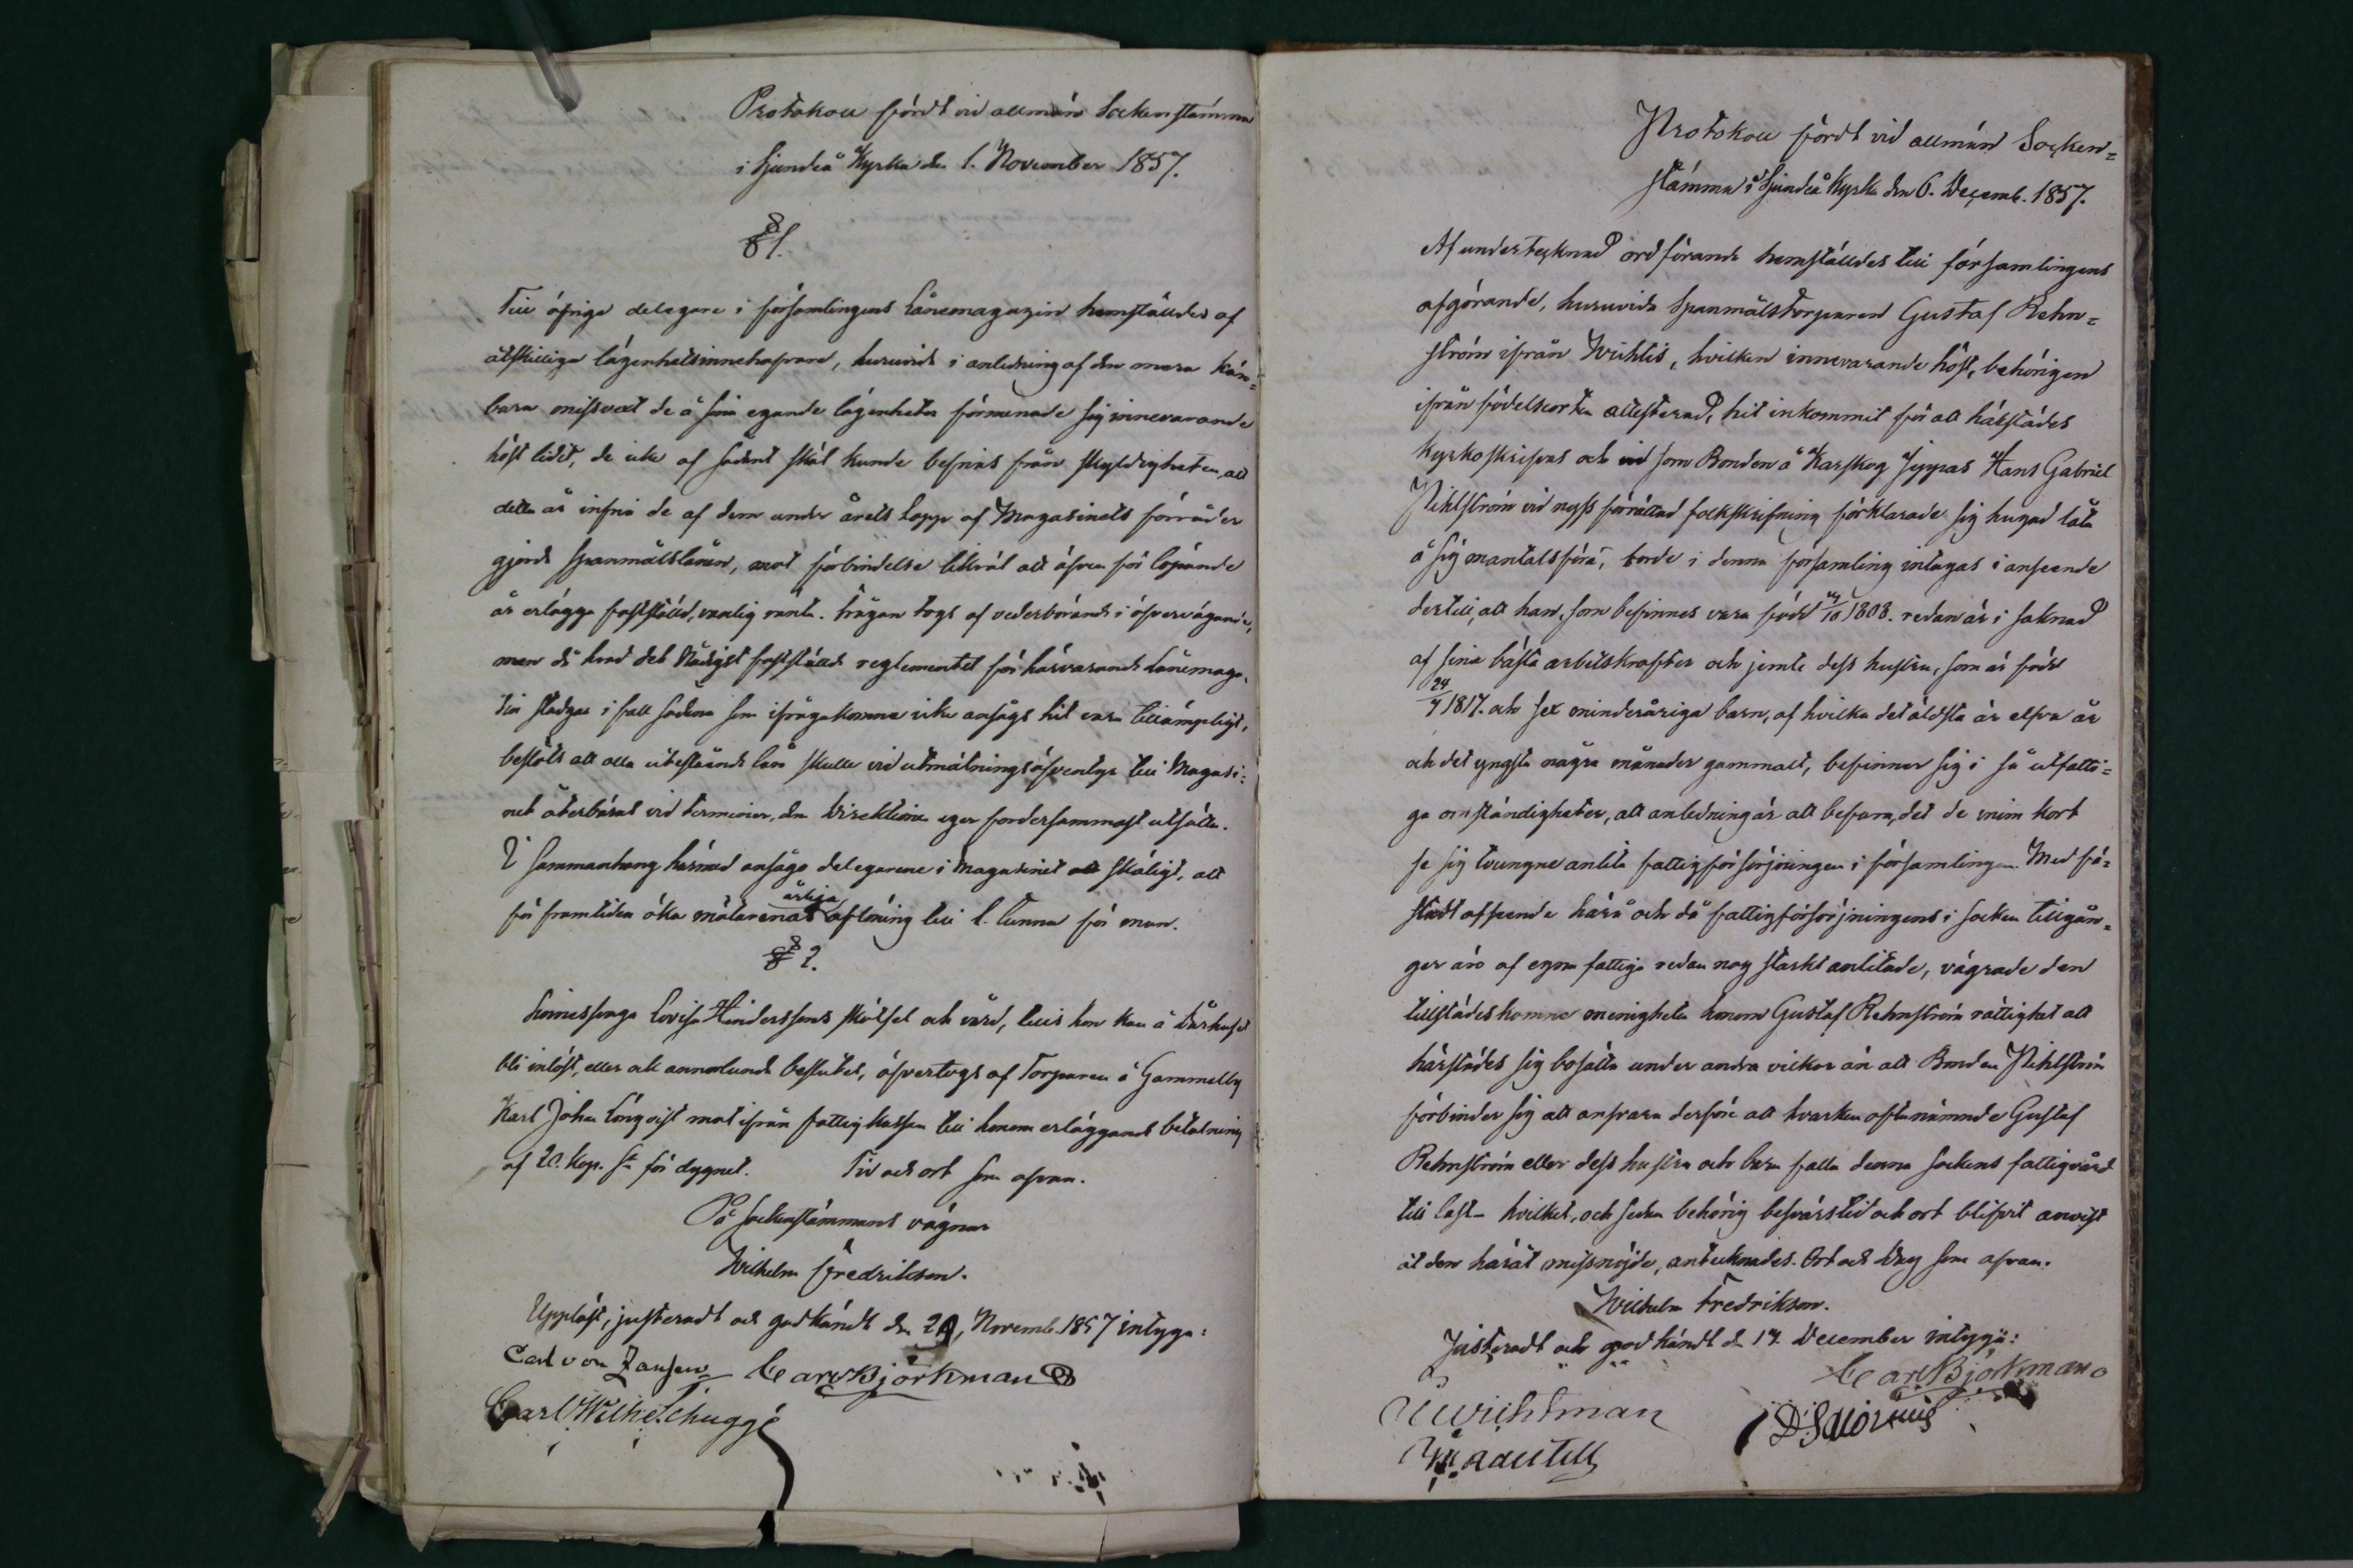 Protokoll fördt vid allmän Sockenstämma
i Sjundeå Kyrka den 1. November 1857.
§ 1.
Till öfrige delegare i församlingens Lånemagazin hemställdes af
åtskilliga lägenhetsinnehafvare, huruvida i anledning af den mera kän=
bara missvext de å sina egande lägenheter förmenade sig innevarande
höst lidit, de icke af sådant skäl kunde befrias från skyldigheten, att
detta år infria de af dem under årets lopp af Magasinets förråder
gjorda Spanmålslånen, mot förbindelse likväl att äfven för löpande
år erlägga fastställd, vanlig ränta. Frågan togs af vederbörande i öfvervägande,
men då hvad det Nådigst fastställde reglementet för härvarande Lånemaga=
sin stadgar i fall sådana som ifrågakomne icke ansågs hit vara tillämpligt,
beslöts att alla utestående lån skulle vid utmätningsäfventyr till Magasi=
net återbäras vid terminer, dem Direktionen eger fordersammast utsätta.
I sammanhang härmed ansågo delegarene i Magasinet skäligt, att
för framtiden öka mätarenas årliga aflöning till 1. tunna för man.
§ 2.
Sinnessvaga Lovisa Hinderssons skötsel och vård, tills hon kan å Dårhuset
bli inlöst, eller ock annorlunda beslutet, öfvertogs af Torparen å Gammelby
Karl Johan Lönqvist mot ifrån fattigkassan till honom erläggande betalning
af 20. kop. Sr för dygnet. Tid och ort som ofvan.
På Sockenstämmans vägnar
Wilhelm Fredrikson.
Uppläst, justeradt och godkändt den 29, Novemb. 1857 intyga:
Carl von Zansen Carl Björkman
Carl Wilh. Tschugge
Protokoll fördt vid allmän Socken=
stämma i Sjundeå Kyrka den 6. Decemb. 1857.
Af undertecknad ordförande hemställdes till församlingens
afgörande, huruvida Spanmålstorparen Gustaf Rehn=
ström ifrån Wichtis, hvilken innevarande höst, behörigen
ifrån födelseorten attesterad, hit inkommit för att härstädes
kyrkoskrifvas och som Bonden å Karskog Jeppas Hans Gabriel
Pihlström vid nyss förrättad folkskrifning förklarade sig hugad låta
å sig mantalsföra, borde i denna församling intagas i anseende
dertill, att han, som befinnes vara född /10 1808. redan är i saknad
af sina bästa arbetskrafter och jemte dess hustru, som är född
24/4 1817. och sex minderåriga barn, af hvilka det äldsta är elfva år
och det yngsta några månader gammalt, befinner sig i så utfatti=
ga omständigheter, att anledning är att befara, det de inom kort
se sig tvungne anlita fattigförsörjningen i församlingen. Med fä=
stadt afseende härå och då fattigförsörjningens i socken tillgån=
gar äro af egna fattiga redan nog starkt anlitade, vägrade den
tillstädeskomne menigheten honom Gustaf Rehnström rättighet att
härstädes sig bosätta under andra vilkor än att Bonden Pihlström
förbinder sig att ansvara derföre att hvarken oftanämnde Gustaf
Rehnström eller dess hustru och barn falla denna sockens fattigvård
till last - hvilket, och sedan behörig besvärstid och ort blifvit anvist
åt den häråt missnöjde, antecknades. Ort och dag som ofvan.
Wilhelm Fredrikson.
Justeradt och godkändt d. 17. December intyga:
Carl Björkman